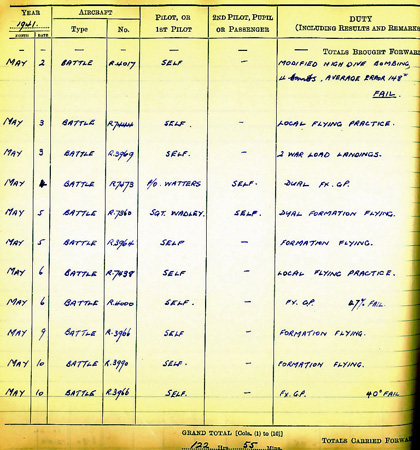 YEAR AIRCRAFT PILOT, OR 2ND PILOT, PUPIL DUTY
1941. Type No. 1ST PILOT OR PASSENGER (INCLUDING RESULTS AND REMARKS
MONTH DATE
— — — — — — — TOTALS BROUGHT FORWARD
MAY 2 BATTLE R.4017 SELF — MODIFIED HIGH DIVE BOMBING,
4 bombs, AVERAGE ERROR 148"
FAIL.
MAY 3 BATTLE R7444 SELF. — LOCAL FLYING PRACTICE.
MAY 3 BATTLE R.3969 SELF. — 2 WAR LOAD LANDINGS.
MAY 4 BATTLE R7473 P/O. WATTERS SELF. DUAL FX. GP.
MAY 5 BATTLE R.7360 SGT. WADLEY. SELF. DUAL FORMATION FLYING.
MAY 5 BATTLE R.3964 SELF — FORMATION FLYING.
MAY 6 BATTLE R.7438 SELF — LOCAL FLYING PRACTICE.
MAY 6 BATTLE R.4000 SELF. — FX. GP. 47% FAIL.
MAY 9 BATTLE R.3966 SELF — FORMATION FLYING.
MAY 10 BATTLE R.3990 SELF. — FORMATION FLYING.
MAY 10 BATTLE R.3966 SELF. — FX. GP. 40% FAIL
GRAND TOTAL [Cols. (1) to (10)]
122 Hrs. 55 Mins.
TOTALS CARRIED FORWAR